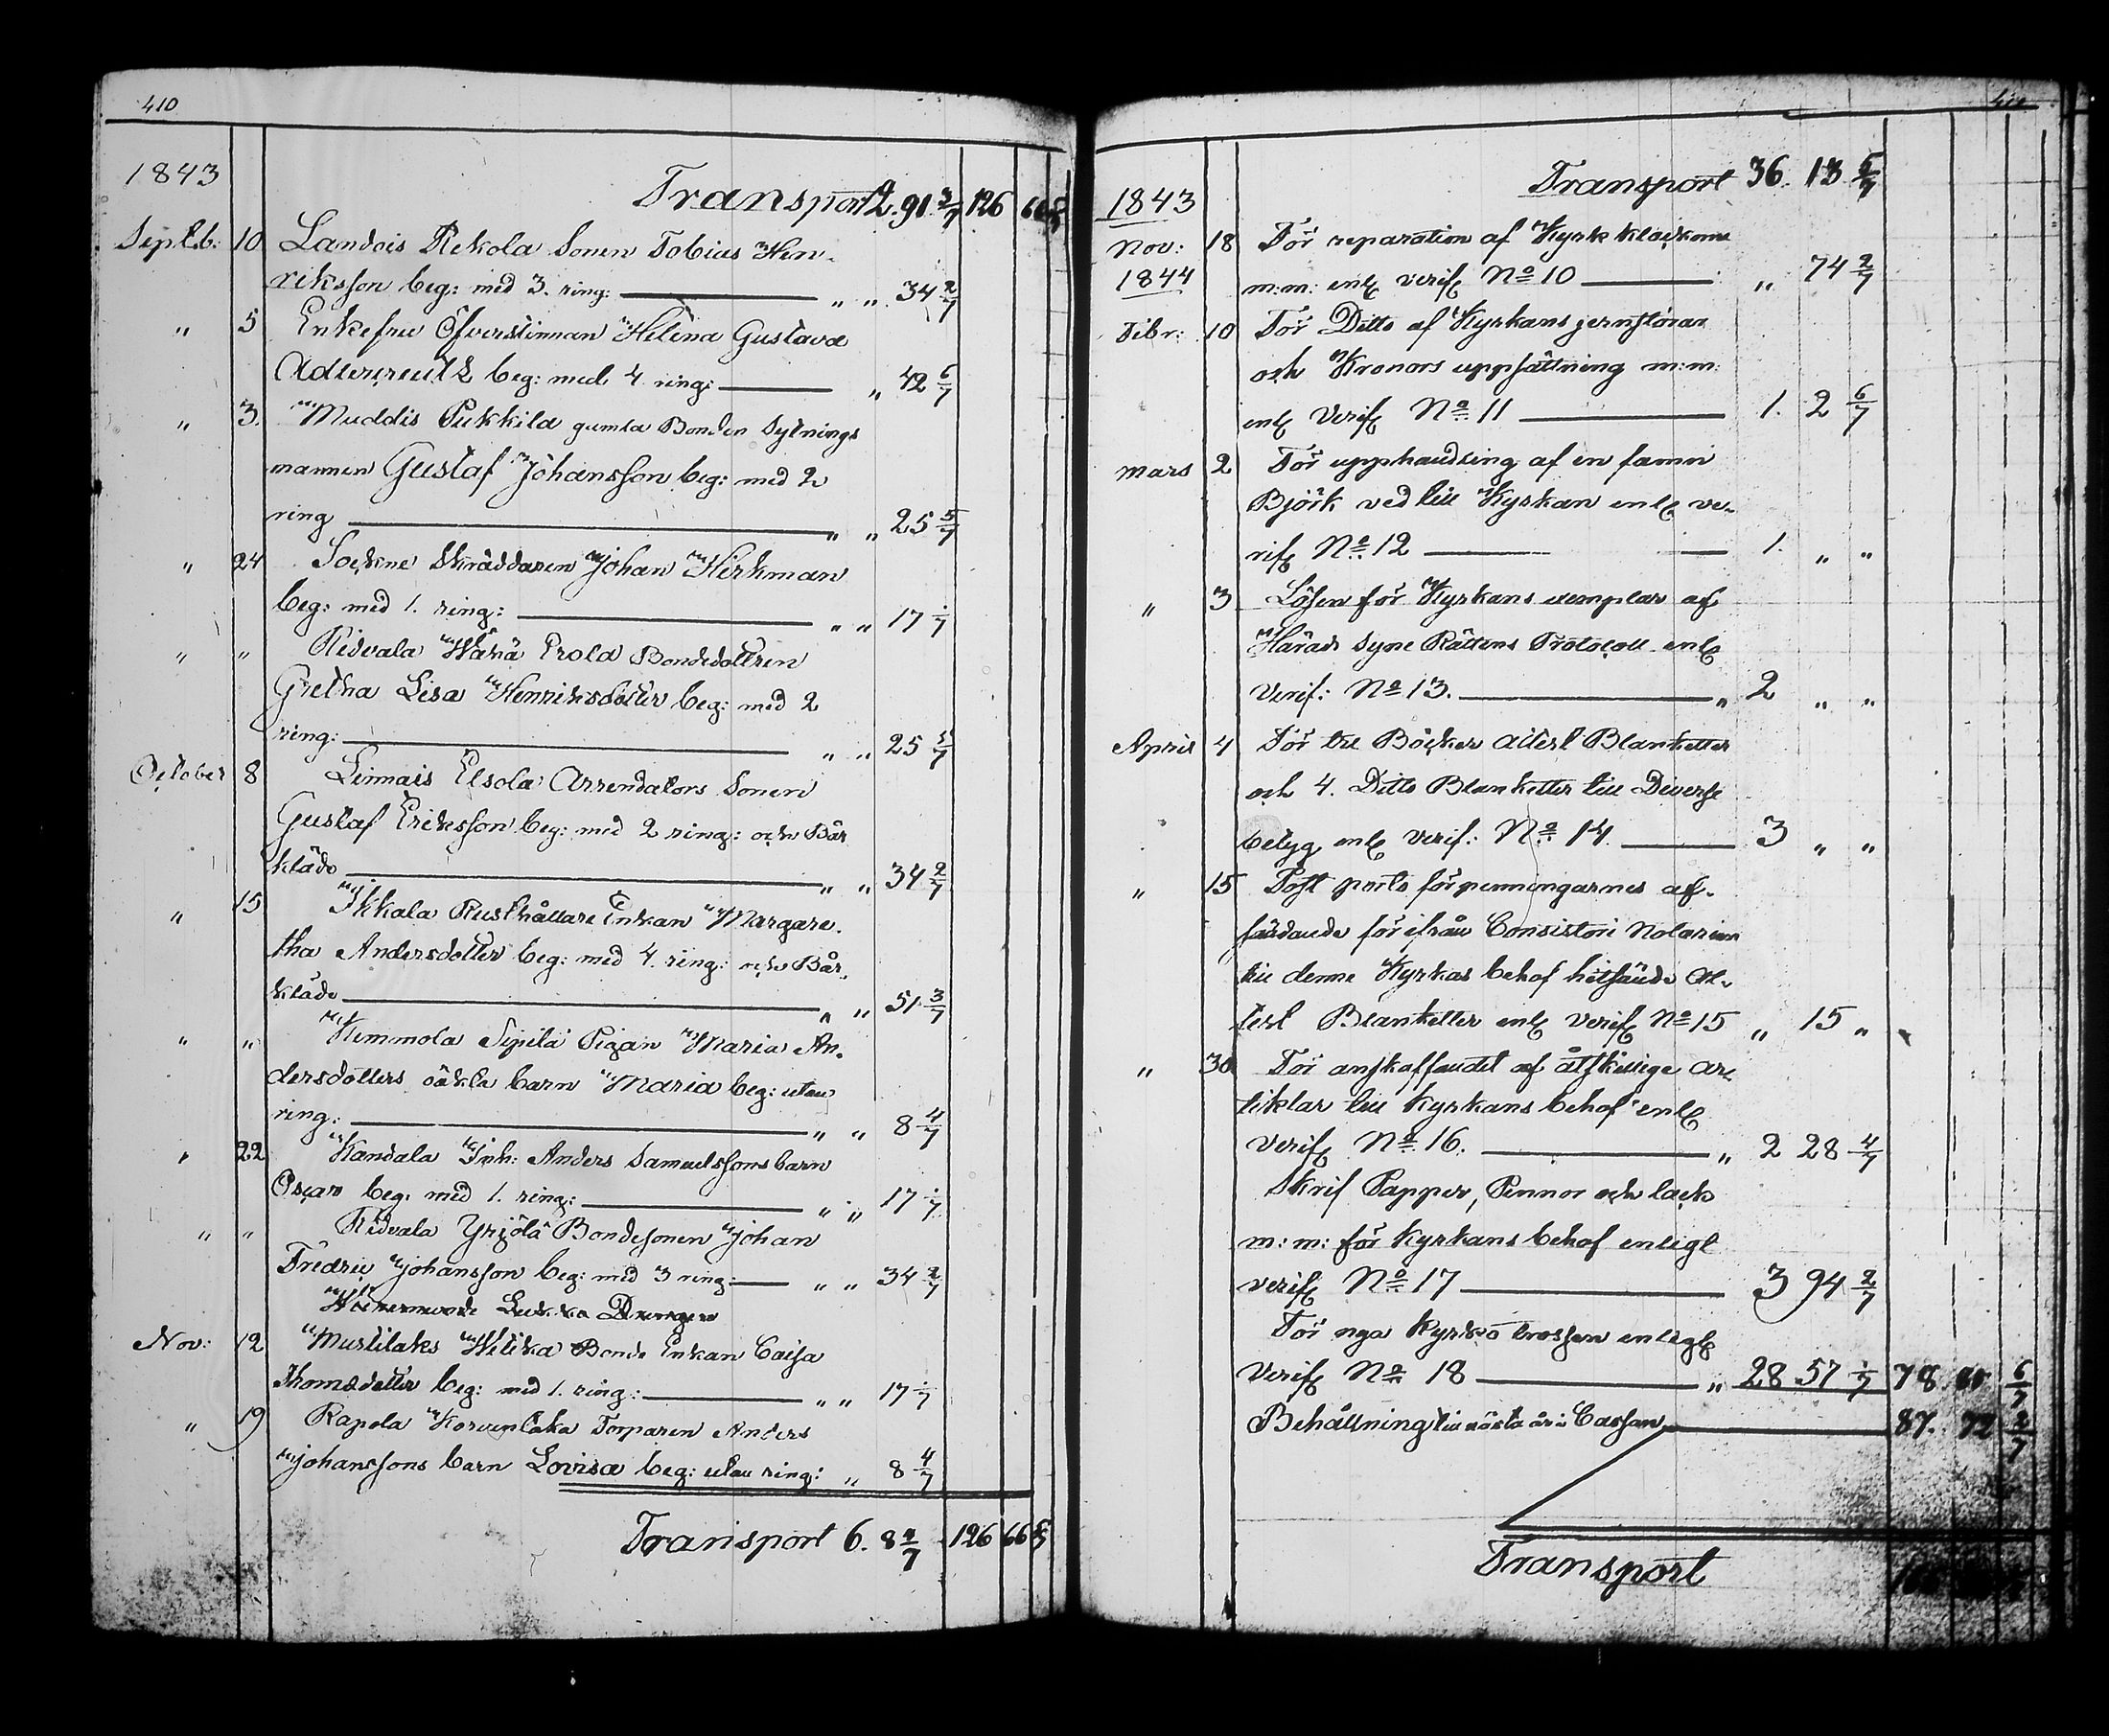 410
1843
Transport 2. 91 3/7 126 66 6/7
Septb: 10 Landois Rekola Sonen Tobias Hen-
riksson beg: med 3. ring: „ „ 34 2/7
„ 5 Enkefru Öfverstinnan Helena Gustava
Adlercreutz beg: med 4 ring: „ 42 6/7
„ 3. Muddis Pukkila gamla Bonden Sytnings
mannen Gustaf Johansson beg: med 2
ring „ „ 25 5/7
„ 24 Sockne Skräddaren Johan Hirkman
beg: med 1. ring: „ „ 17 1/7
„ „ Ridvala Erola Bondedottren
Gretha Lisa Henriksdotter beg: med 2
ring: „ „ 25 5/7
October 8 Linnais Elsola Arrendators Sonen
Gustaf Eriksson beg: med 2 ring: och Bår
kläde „ „ 34 2/7
„ 15 Ikkala Rusthållare Enkan Margare-
tha Andersdotter beg: med 4. ring: och Bår-
kläde „ „ 51 3/7
„ „ Kimmola Sipilä Pigan Maria An-
dersdotters oäkta barn Maria beg: utan
ring: „ „ 8 4/7
„ 22 Kandala Inh: Anders Samuelssons barn
Oscar beg: med 1. ring: „ „ 17 1/7
„ „ Ridvala Yrjölä Bondesonen Johan
Fredric Johansson beg: med 3 ring: „ „ 34 2/7
Nov: 12 Mustilaks Bonde Enkan Caisa
Thomædotter beg: med 1. ring: „ „ 17 1/7
„ 19 Rapola Torparen Anders
Johanssons barn Lovisa beg: utan ring: „ 8 4/7
Transport 6. 8 4/7 126 66 6/7
411
Transport 36. 13 5/7
1843
Nov: 18 För reparation af Kyrk klockorne
1844
m:m: enl verif No 10 „ 74 2/7
Febr: 10 För Ditto af Kyrkans jernstörar
och Kronors uppsättning m:m:
enl Verif No 11 1. 2 6/7
Mars 2 För upphandling af en famn
Björk ved till Kyrkan enl ve-
rif No 12 1. „ „
„ 3 Lösen för Kyrkans exemplar af
Härads Syne Rättens Protocoll enl
Verif: No 13. „ 2 „ „
April 4 För tre Böcker Attest Blanketter
och 4. Ditto Blanketter till Diverse
betyg enl verif: No 14. 3 „ „
„ 15 Post porto för penningarnes af-
färdande för ifrån Consistorii Notarien
till denne Kyrkas behof hitsände At-
test Blanketter enl Verif No 15 „ 15 „
„ 30 För anskaffandet af åtskillige ar-
tiklar till Kyrkans behof enl
verif No 16. „ 2 28 4/7
Skrif Papper, Pennor och lack
m:m: för Kyrkans behof enligt
verif No 17 3 94 2/7
För nya Kyrko trossen enligt
Verif No 18 „ 28 57 1/7 78. 6/7
Behållning till nästa år i Cassan 87. 72 2/7
Transport